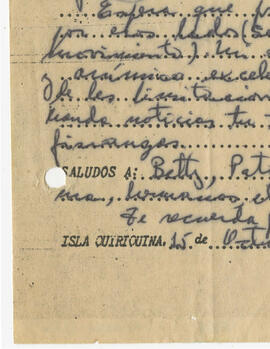 Espero que
por esos lados (Se
movimiento). Mi
y anímico excele
de las limitacion
manda noticias tu
SALUDOS A: Betty, Pat
hermanos
Te recuerda
ISLA QUIRIQUINA, 15 de Octu